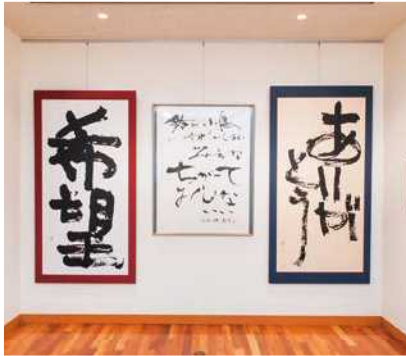 希望
鈴と小鳥と
それからわたし
みんな
ちがって
みんな
いい
ありが
とう